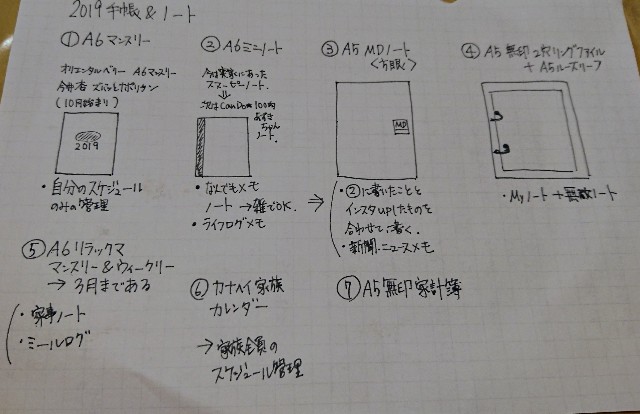 2019 手帳 & ノート
① A6 マンスリー
オリエンタルベリー A6マンスリー
(10月始まり)
2019
・自分のスケジュール
のみの管理
② A6 ミニノート
今は実家にあった
スヌーピーノート.
⇓
次は CanDo 100均
あずき
ちゃん
ノート.
・なんでもメモ
ノート → 雑でOK.
・ライフログメモ
⇒
③ A5 MDノート
<方眼>
MD
・②に書いたことと
インスタupしたものを
合わせて書く.
・新聞.ニュースメモ
④ A5 無印 2穴リングファイル
+ A5ルーズリーフ
・Myノート + 無敵ノート
⑤ A6 リラックマ
マンスリー & ウィークリー
→ 3月まである
・家事ノート
・ミールログ
⑥ カナヘイ家族
カレンダー
→ 家族全員の
スケジュール管理
⑦ A5 無印家計簿